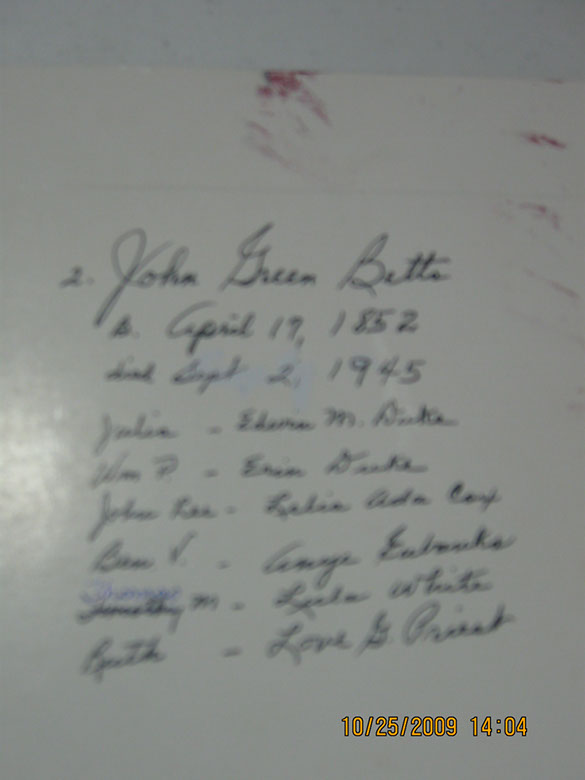 2. John Green Betts
b. April 17, 1852
died Sept 2, 1945
Julia - Edwin M. Duke
Wm P. - Erin Duke
John Lee - Lelia Ada Cox
Ben V. - Angie Eubanks
Thomas
Timothy M - Lula White
Ruth - Love G. Priest
10/25/2009 14:04